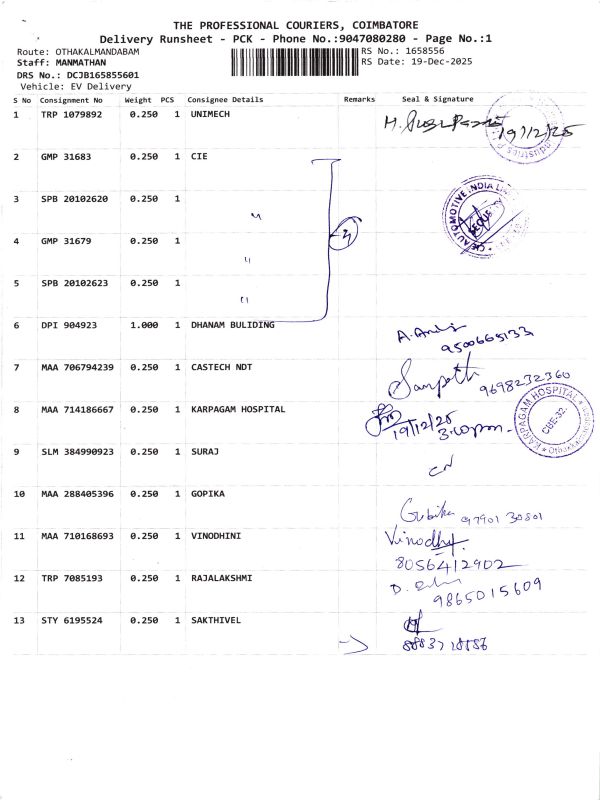 THE PROFESSIONAL COURIERS, COIMBATORE
Delivery Runsheet - PCK - Phone No.:9047080280 - Page No.:1
Route: OTHAKALMANDABAM RS No.: 1658556
Staff: MANMATHAN RS Date: 19-Dec-2025
DRS No.: DCJB165855601
Vehicle: EV Delivery
S No Consignment No Weight PCS Consignee Details Remarks Seal & Signature
1 TRP 1079892 0.250 1 UNIMECH 19/12/25
2 GMP 31683 0.250 1 CIE
3 SPB 20102620 0.250 1 "
4 GMP 31679 0.250 1 "
5 SPB 20102623 0.250 1 "
CIE AUTOMOTIVE INDIA
6 DPI 904923 1.000 1 DHANAM BULIDING
9500665133
7 MAA 706794239 0.250 1 CASTECH NDT Sampath 9698232360
8 MAA 714186667 0.250 1 KARPAGAM HOSPITAL 19/12/25 3.10pm.
KARPAGAM HOSPITAL CBE-32.
9 SLM 384990923 0.250 1 SURAJ
10 MAA 288405396 0.250 1 GOPIKA Gubika 97901 30801
11 MAA 710168693 0.250 1 VINODHINI Vinodhy
8056412902
12 TRP 7085193 0.250 1 RAJALAKSHMI
9865015609
13 STY 6195524 0.250 1 SAKTHIVEL